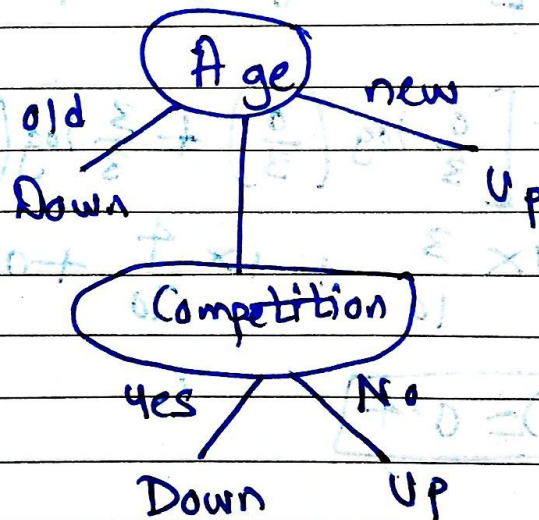 Age
old new
Down Up
Competition
Yes No
Down Up